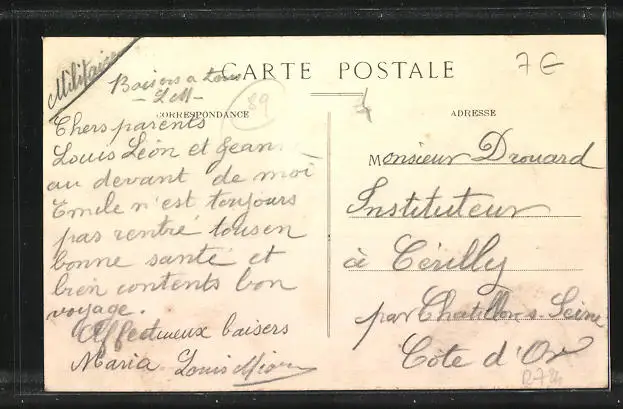 Militaire
Baisers à tous
CARTE POSTALE
7€
89
CORRESPONDANCE
ADRESSE
Chers parents
Louis Léon et Jean
au devant de moi
Emile n'est toujours
pas rentré tous en
bonne santé et
bien contents bon
voyage.
Affectueux baisers
Maria Louis
Monsieur Drouard
Instituteur
à Cérilly
par Chatillon s. Seine
Côte d'Or